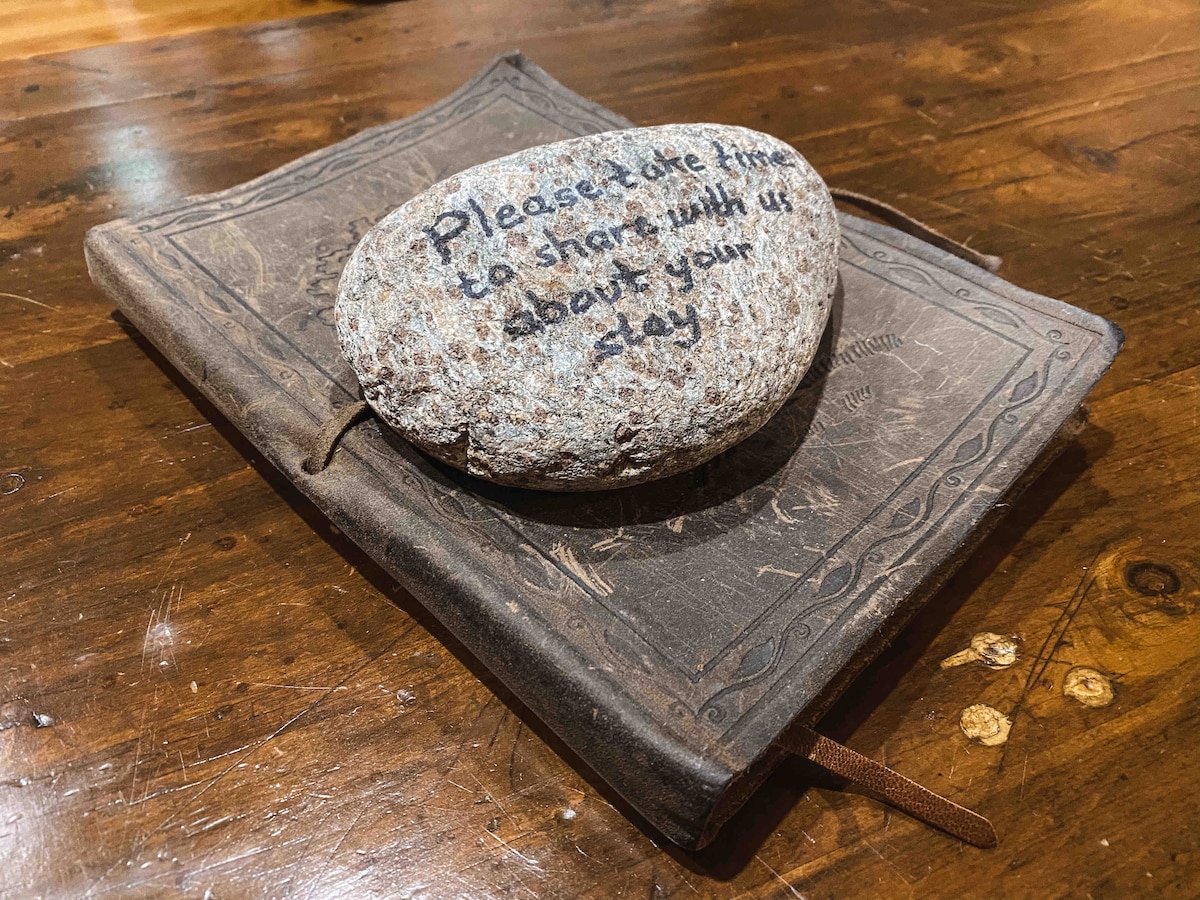 Please take time
to share with us
about your
stay